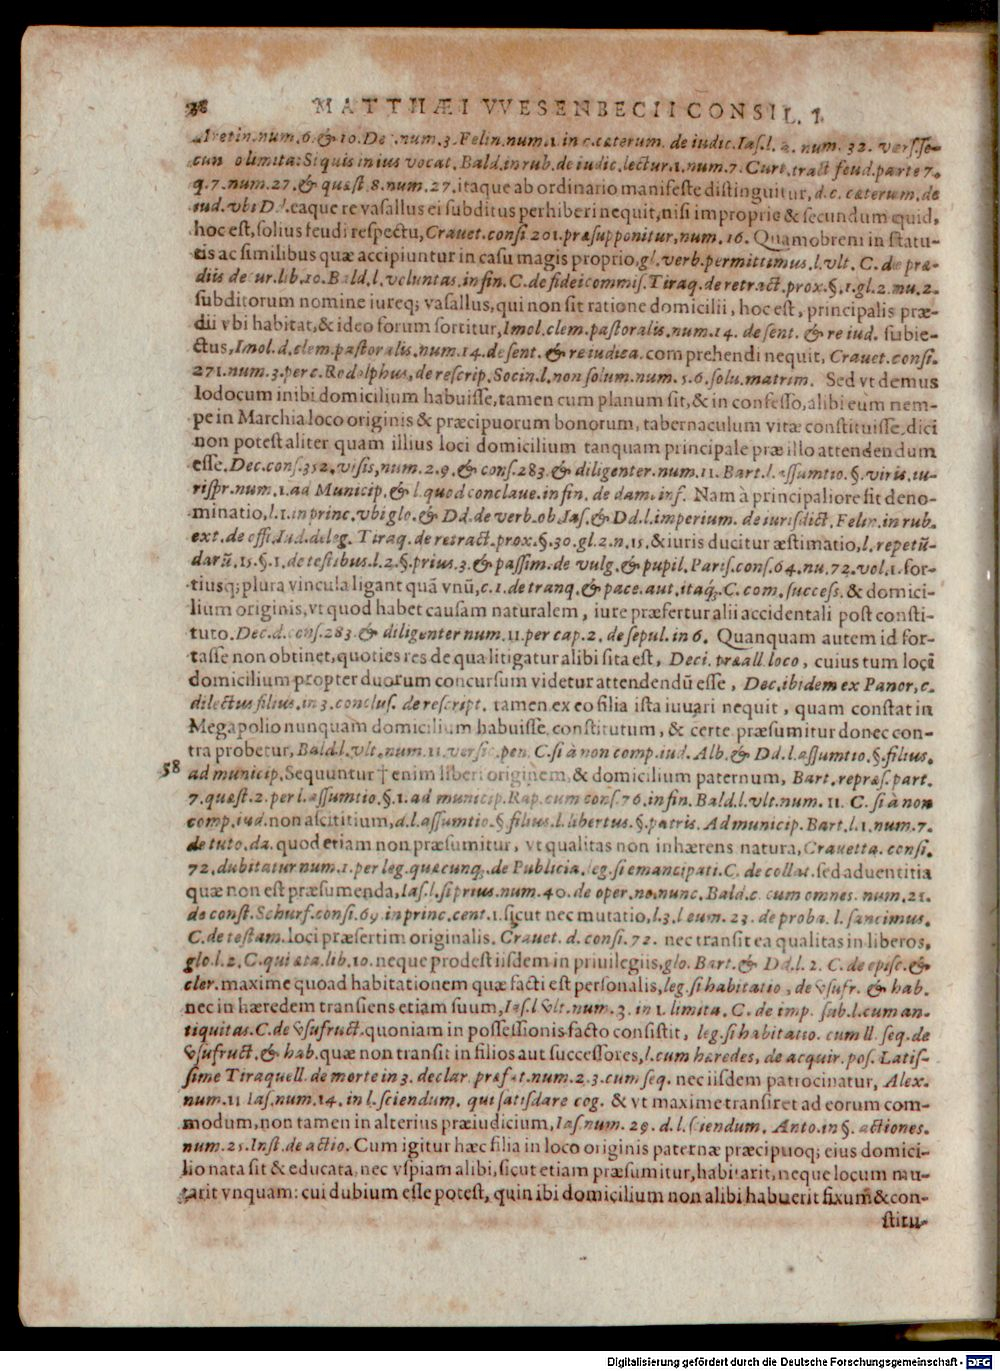 38 MATTHÆI VVESENBECII CONSIL. I.
Aretin.num.6.& 10.De .num.3.Felin.num.1 in c.cæterum. de iudic.Iaſ.l. 2. num. 32. verſ.ſe-
cun o limita: Si quis in ius vocat. Bald.in rub.de iudic.lectur.1.num.7. Curt.tract feud.parte 7.
q.7.num.27.& quæſt 8.num.27.itaque ab ordinario manifeſte diſtinguitur, d.c. cæterum.de
iud.vbi Dd.eaque re vaſallus ei ſubditus perhiberi nequit, niſi improprie & ſecundum quid,
hoc eſt, ſolius feudi reſpectu, Crauet.conſi 201.præſupponitur,num. 16. Quamobrem in ſtatu-
tis ac ſimilibus quæ accipiuntur in caſu magis proprio,gl.verb.permittimus.l.vlt. C. de præ-
diis decur.lib.10. Bald.l.voluntas.in fin. C.de fideicommiſ.Tiraq.de retract.prox.§.1.gl.2.nu.2.
ſubditorum nomine iureq; vaſallus, qui non ſit ratione domicilii, hoc eſt, principalis præ-
dii vbi habitat,& ideo forum ſortitur, Imol.clem.paſtoralis.num.14. de ſent. & re iud. ſubie-
ctus, Imol.d.clem.paſtoralis.num.14.de ſent. & re iudica.comprehendi nequit, Crauet.conſi.
271.num.3.per c.Rodolphus, de reſcrip.Socin.l.non ſolum.num. 5.6.ſolu.matrim. Sed vt demus
Iodocum inibi domicilium habuiſſe, tamen cum planum ſit,& in confeſſo, alibi eum nem-
pe in Marchia loco originis & præcipuorum bonorum, tabernaculum vitæ conſtituiſſe, dici
non poteſt aliter quam illius loci domicilium tanquam principale præ illo attendendum
eſſe, Dec.conſ.352.viſis,num.2.9.& conſ.283.& diligenter.num.11. Bart.l.aſſumtio.§.viris.iu-
riſpr.num.1.ad Municip.& l.quod conclaue.in fin. de dam.inf. Nam à principaliore fit deno-
minatio,l.1.in princ.vbi glo.& Dd.de verb.ob.Iaſ.& Dd.l.imperium. de iuriſdict. Felin.in rub.
ext.de offi.Iud.deleg. Tiraq.de retract.prox.§.30.gl.2.n.15,& iuris ducitur æſtimatio, l. repetū-
darū.15.§.1.de teſtibus.l.2.§.prius.3.& paſſim.de vulg.& pupil.Pariſ.conſ.64.nu.72.vol.1.for-
tiusq; plura vincula ligant quā vnū, c.1.de tranq.& pace.aut.itaq́;.C. com.ſucceſſ. & domici-
lium originis, vt quod habet cauſam naturalem, iure præfertur alii accidentali poſt conſti-
tuto.Dec.d.conſ.283 & diligenter num.11.per cap.2. de ſepul.in 6. Quanquam autem id for-
taſſe non obtinet, quoties res de qua litigatur alibi ſita eſt, Deci. præall.loco, cuius tum loci
domicilium propter duorum concurſum videtur attendendū eſſe, Dec.ibidem ex Panor.c.
dilectus filius.in 3.concluſ. de reſcript. tamen ex eo filia iſta iuuari nequit, quam conſtat in
Megapolio nunquam domicilium habuiſſe, conſtitutum, & certe præſumitur donec con-
tra probetur, Bald.l.vlt.num.11.verſic.pen. C.ſi à non comp.iud. Alb.& Dd.l.aſſumtio.§.filius.
58 ad municip.Sequuntur † enim liberi originem, & domicilium paternum, Bart.repræſ.part.
7.quæſt.2.per l.aſſumtio.§.1. ad municip.Rap.cum conſ.76.in fin. Bald.l.vlt.num. 11. C. ſi à non
comp.iud.non aſcititium, d.l.aſſumtio.§.filius.l.libertus.§.patris. Ad municip.Bart.l.1.num.7.
de tuto.da. quod etiam non præſumitur, vt qualitas non inhærens natura, Crauetta. conſi.
72.dubitatur num.1.per leg.quæcunq;.de Publicia.leg.ſi emancipati.C. de collat.ſed aduentitia
quæ non eſt præſumenda, Iaſ.l.ſi prius.num.40. de oper.no.nunc.Bald.c. cum omnes. num.21.
de conſt.Schurf.conſi.69.in princ.cent.1.ſicut nec mutatio, l.3.l eum. 23. de proba. l. ſancimus.
C.de teſtam.loci præſertim originalis. Crauet. d. conſi.72. nec tranſit ea qualitas in liberos,
glo.l.2. C.qui æta.lib.10. neque prodeſt iiſdem in priuilegiis, glo. Bart.& Dd.l. 2. C.de epiſc.&
cler. maxime quoad habitationem quæ facti eſt perſonalis, leg.ſi habitatio, de vſufr. & hab.
nec in hæredem tranſiens etiam ſuum, Iaſ.l vlt.num. 3. in 1. limita. C. de imp. ſub.l.cum an-
tiquitas.C.de vſufruct.quoniam in poſſeſſionis facto conſiſtit, leg.ſi habitatio. cum ll. ſeq.de
vſufruct.& hab.quæ non tranſit in filios aut ſucceſſores, l.cum hæredes, de acquir.poſ. Latiſ-
ſime Tiraquell. de morte in 3. declar.præfat.num.2.3.cum ſeq. nec iiſdem patrocinatur, Alex.
num.11 Iaſ.num.14. in l.ſciendum. qui ſatiſdare cog. & vt maxime tranſiret ad eorum com-
modum, non tamen in alterius præiudicium, Iaſ.num. 29. d.l.ſciendum. Anto.in §.actiones.
num.25.Inſt.de actio. Cum igitur hæc filia in loco originis paternæ præcipuoq; eius domici-
lio nata ſit & educata, nec vſpiam alibi, ſicut etiam præſumitur, habitarit, neque locum mu-
tarit vnquam: cui dubium eſſe poteſt, quin ibi domicilium non alibi habuerit fixum & con-
ſtitu-
Digitalisierung gefördert durch die Deutsche Forschungsgemeinschaft - DFG